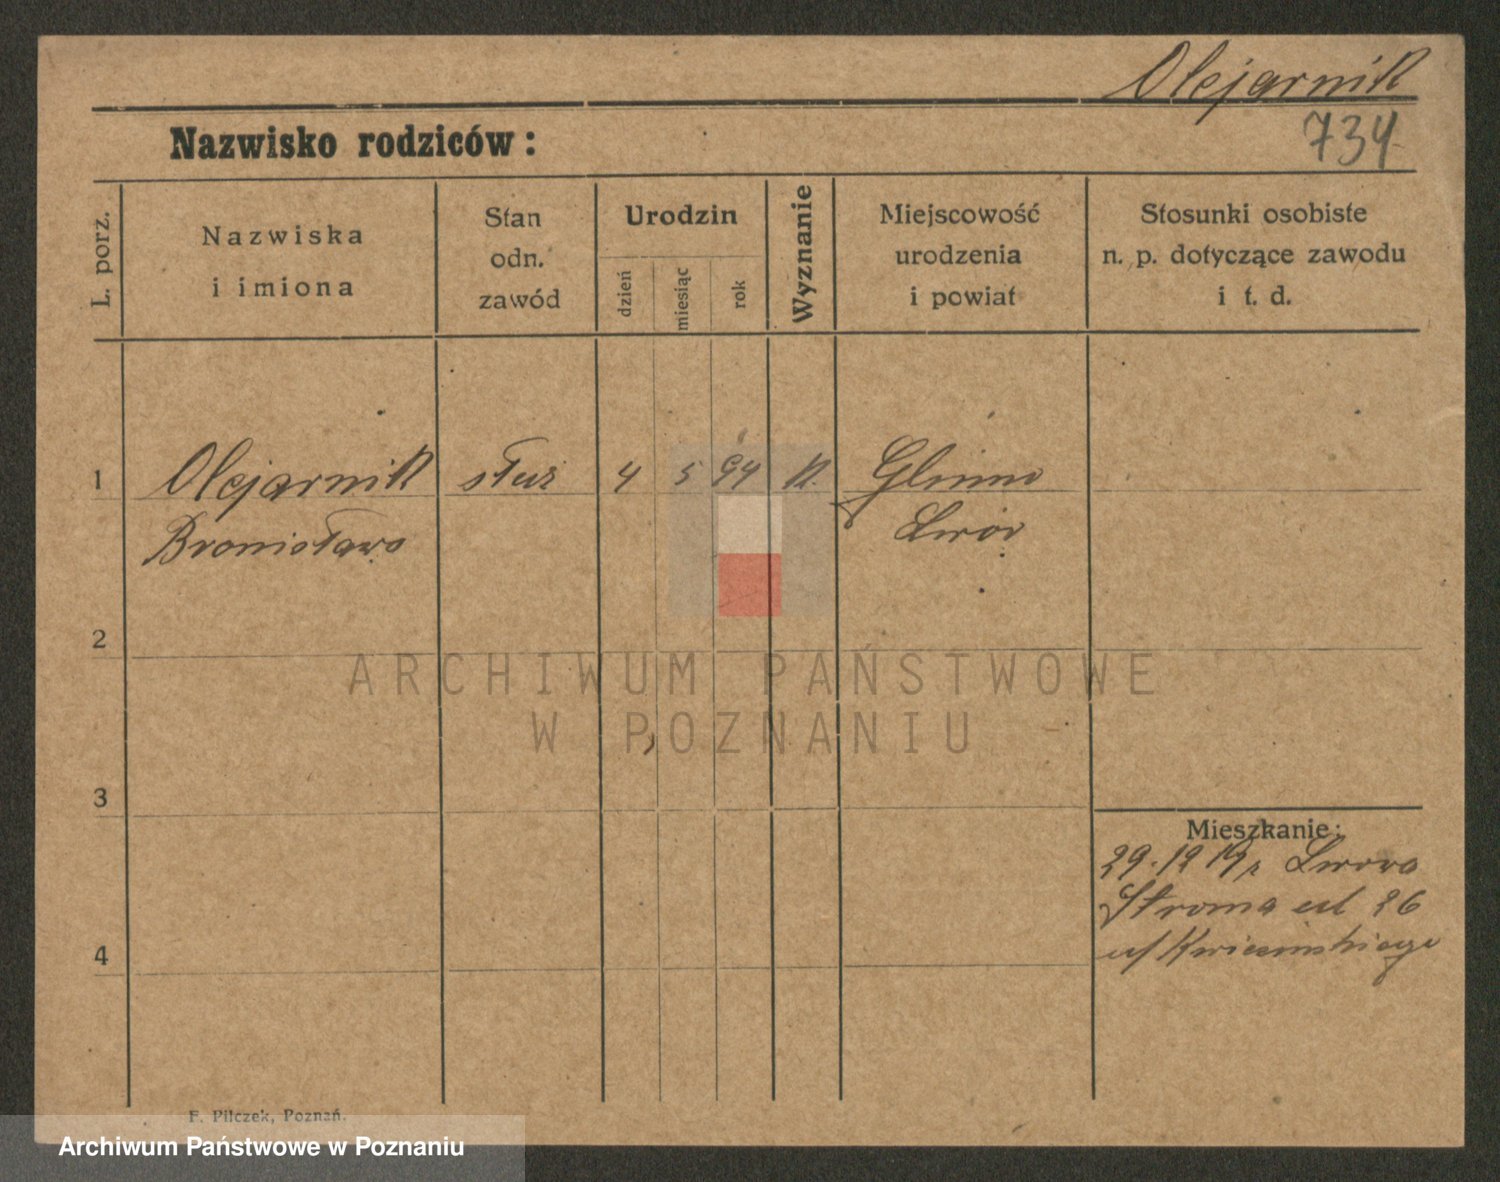 Olejarnik
Nazwisko rodziców:
734
L. porz.
Nazwiska
i imiona
Stan
odn.
zawód
Urodzin
dzień
miesiąc
rok
Wyznanie
Miejscowość
urodzenia
i powiat
Stosunki osobiste
n. p. dotyczące zawodu
i t. d.
1
Olejarnik służ 4 5 94 K. Glinno
Bronisława Lwów
2
ARCHIWUM PAŃSTWOWE
W POZNANIU
3
Mieszkanie:
29.12 19 r Lwowa
Stroma ul 26
4
F. Pilczek, Poznań.
Archiwum Państwowe w Poznaniu